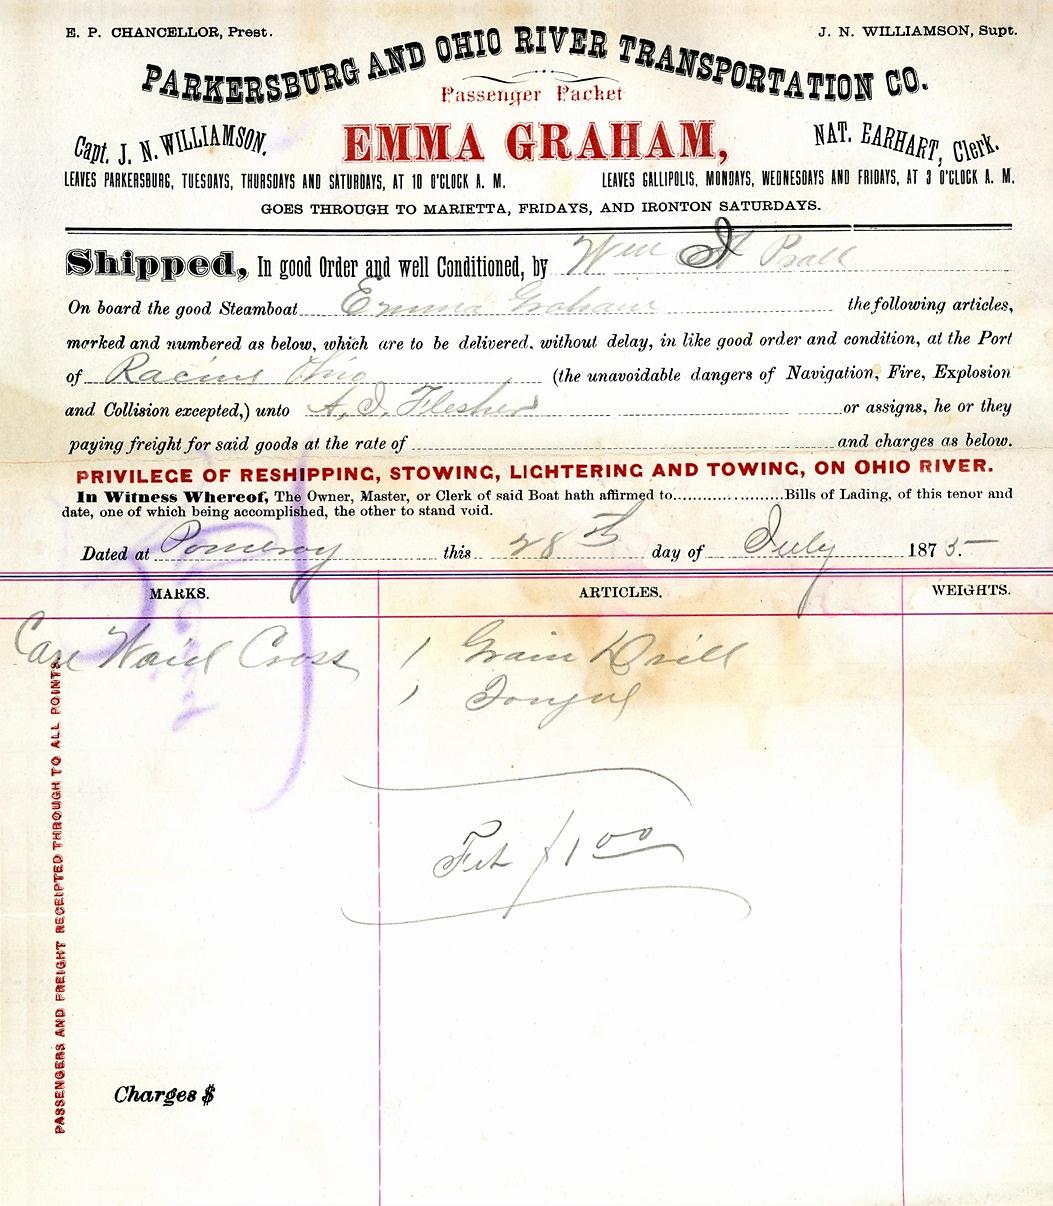 E. P. CHANCELLOR, Prest.
J. N. WILLIAMSON, Supt.
PARKERSBURG AND OHIO RIVER TRANSPORTATION CO.
Passenger Packet
Capt. J. N. WILLIAMSON.
EMMA GRAHAM,
NAT. EARHART, Clerk.
LEAVES PARKERSBURG, TUESDAYS, THURSDAYS AND SATURDAYS, AT 10 O'CLOCK A. M.
LEAVES GALLIPOLIS, MONDAYS, WEDNESDAYS AND FRIDAYS, AT 3 O'CLOCK A. M.
GOES THROUGH TO MARIETTA, FRIDAYS, AND IRONTON SATURDAYS.
Shipped, In good Order and well Conditioned, by Wm
On board the good Steamboat Emma Graham the following articles,
marked and numbered as below, which are to be delivered, without delay, in like good order and condition, at the Port
of Racine Ohio (the unavoidable dangers of Navigation, Fire, Explosion
and Collision excepted,) unto A. J. Flesher or assigns, he or they
paying freight for said goods at the rate of and charges as below.
PRIVILEGE OF RESHIPPING, STOWING, LIGHTERING AND TOWING, ON OHIO RIVER.
In Witness Whereof, The Owner, Master, or Clerk of said Boat hath affirmed to Bills of Lading, of this tenor and
date, one of which being accomplished, the other to stand void.
Dated at Pomeroy this 28th day of July 1875.
MARKS.
ARTICLES.
WEIGHTS.
Care Cross 1 Grain Drill
1 Tongue
Frt $1 00
PASSENGERS AND FREIGHT RECEIPTED THROUGH TO ALL POINTS.
Charges $